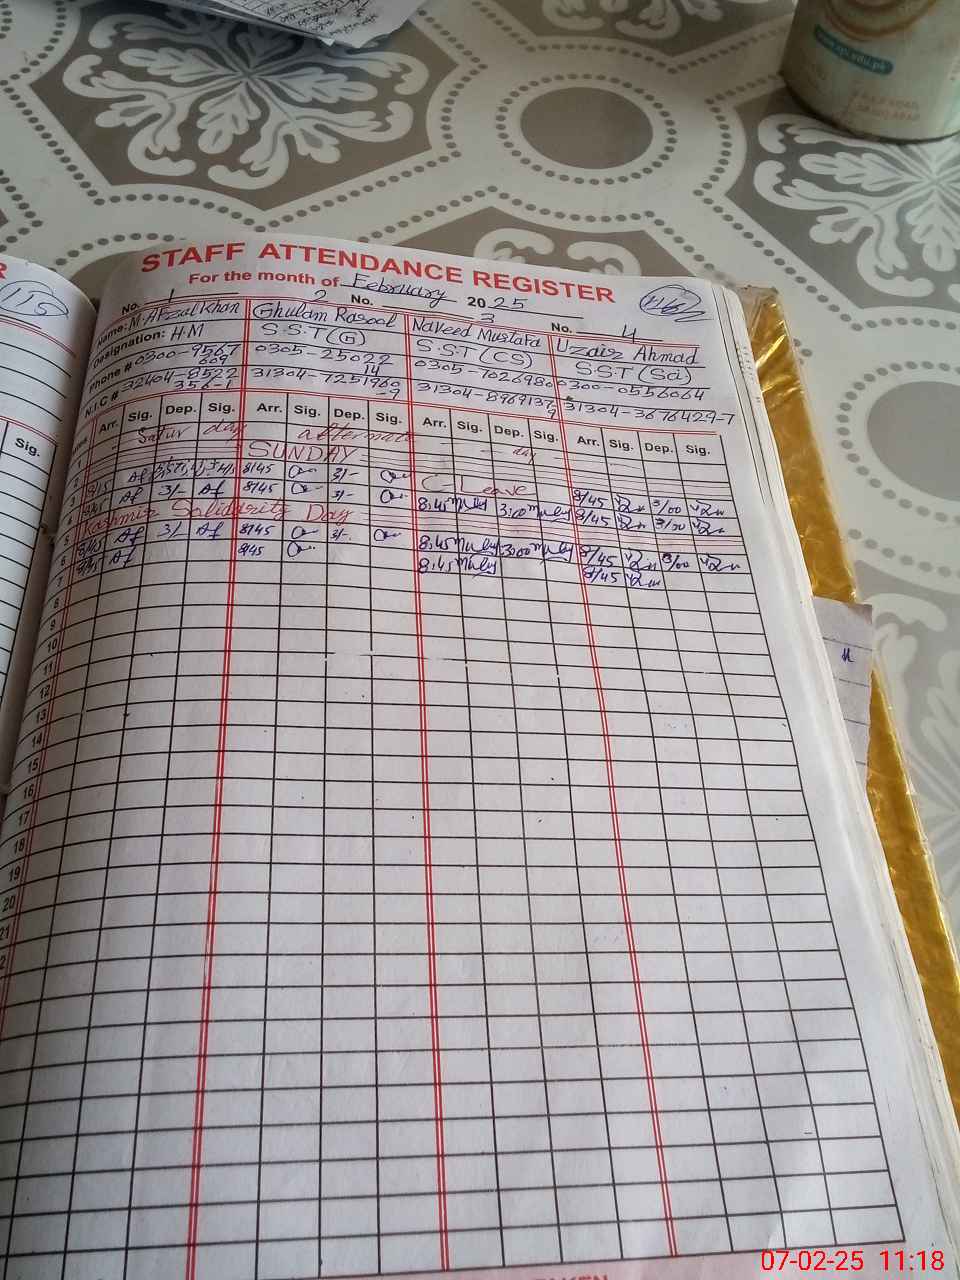 www.vpi.edu.pk
STAFF ATTENDANCE REGISTER
For the month of February 2025
No. 1 2 No. 3 No. 4
Name: M. Afzal Khan Ghulam Rasool Naveed Mustafa Uzair Ahmad
Designation: H.M S.S.T (G) S.S.T (CS) S.S.T (Sci)
Phone # 0300-9567609 0305-2502214 0305-7026980 0300-0556064
N.I.C # 32404-8522356-1 31304-7251960-9 31304-8969137-9 31304-3676429-7
Arr. Sig. Dep. Sig. Arr. Sig. Dep. Sig. Arr. Sig. Dep. Sig. Arr. Sig. Dep. Sig.
1 Satur day alternate day
2 SUNDAY
3 8/15 8/45 3/- C-Leave 8/45 3/00
4 8/45 3/- 8/45 3/- 8:45 3:00 8/45 3/00
5 Kashmir Solidarity Day
6 8/45 3/- 8/45 3/- 8:45 3:00 8/45 3/00
7 8/45 8/45 8:45 8/45
8
9
10
11
12
13
14
15
16
17
18
19
20
21
Sig.
115
07-02-25 11:18